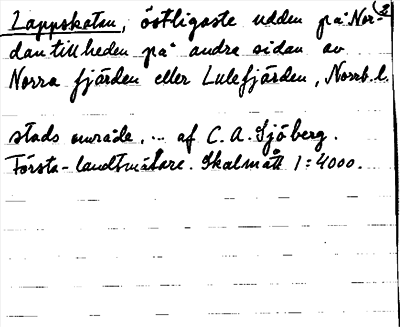 (2)
Lappskaten, östligaste udden på Nor-
dantillheden på andra sidan av
Norra fjärden eller Lulefjärden, Norrb. l.
stads område, ... af C. A. Sjöberg.
Första-landtmätare. Skalmått 1:4000.